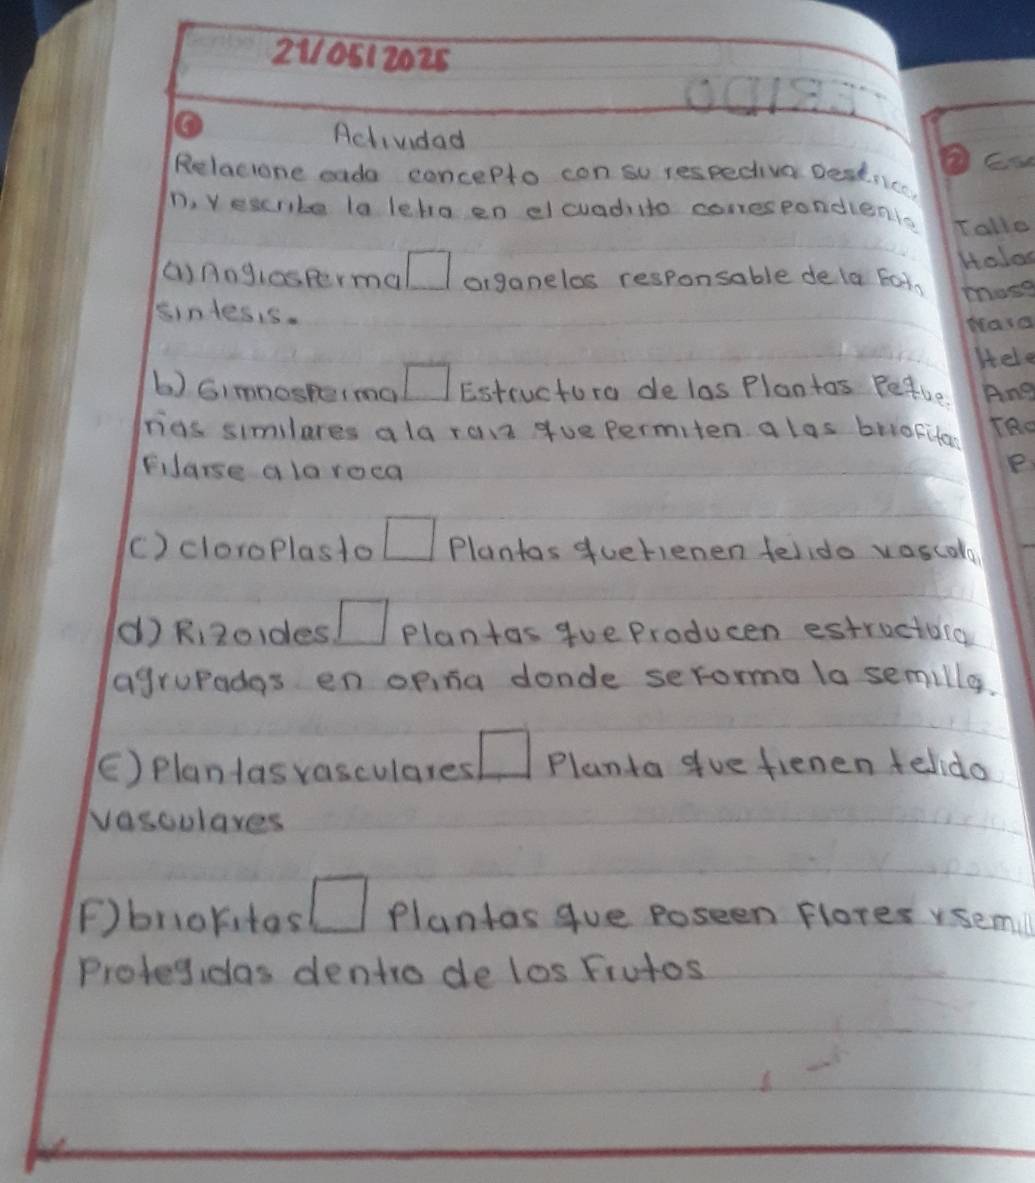 21/05/2025
① Actividad
Relacione cada concepto con su respectiva
n, y escribe la letra en el cuadrito correspondiente
a) Angiosperma □ organelos responsable de la Foto
sintesis.
b) Gimnosperma □ Estructura de las Plantas Peque
ñas similares a la raiz que Permiten a las briofitas
Fijarse a la roca
c) cloroplasto □ Plantas que tienen tejido vascular
d) Rizoides □ Plantas que Producen estructura
agrupadas en opiña donde se Forma la semilla.
E) Plantas vasculares □ Planta que tienen tejido
vasculares
F) briofitas □ Plantas que Poseen Flores y semill
Protegidas dentro de los Frutos
② Es
Tallo
Hojas
Hele
Ang
P